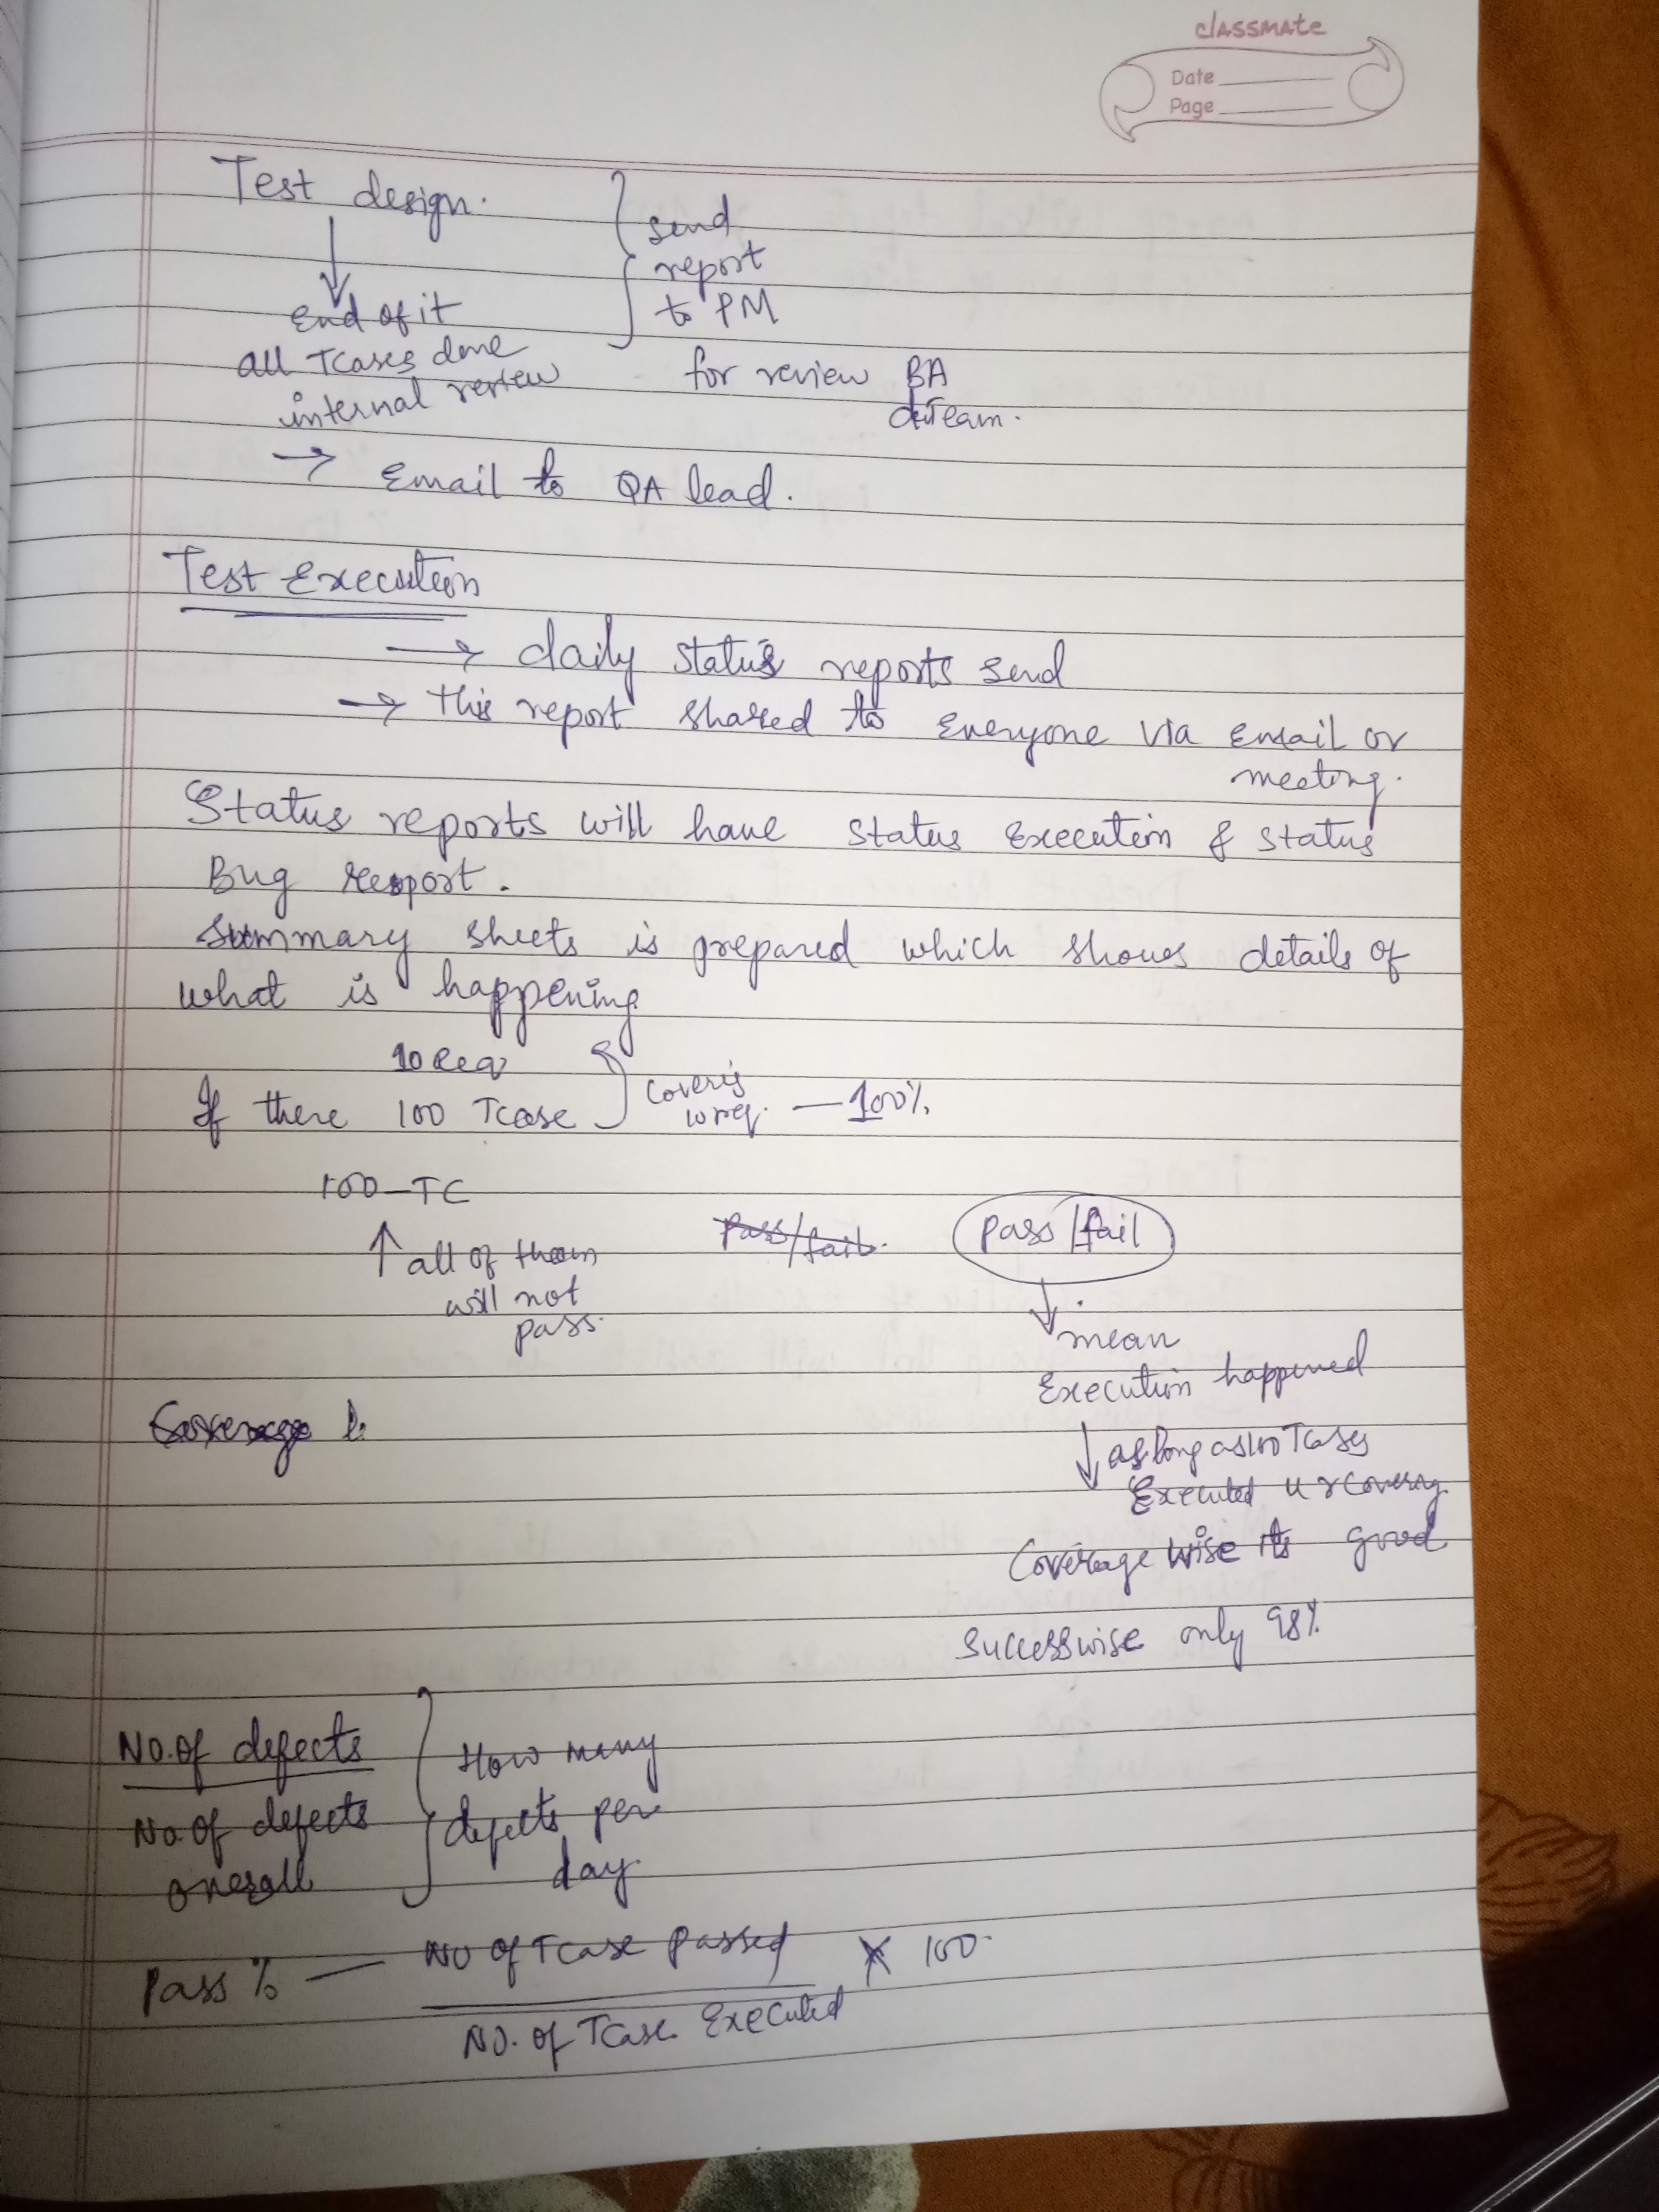 classmate
Date
Page
Test design.
send
report
to PM
End of it
all Tcases done
internal review
for review BA
Team.
→ Email to QA lead.
Test Execution
→ daily status reports send
→ this report shared to everyone via email or
meeting.
Status reports will have status execution & status
Bug report.
Summary sheets is prepared which shows details of
what is happening
10 Req
If there 100 Tcase
covering
10 req. — 100%
100-TC
↑ all of them
will not
pass.
pass/fail.
pass/fail
mean
Execution happened
as long as 100 Tcases
Executed u r covering
Coverage wise its good
Coverage
Successwise only 98%
No. of defects
No. of defects
overall
How many
defects per
day.
Pass % — No of Tcase passed X 100.
No. of Tcase Executed